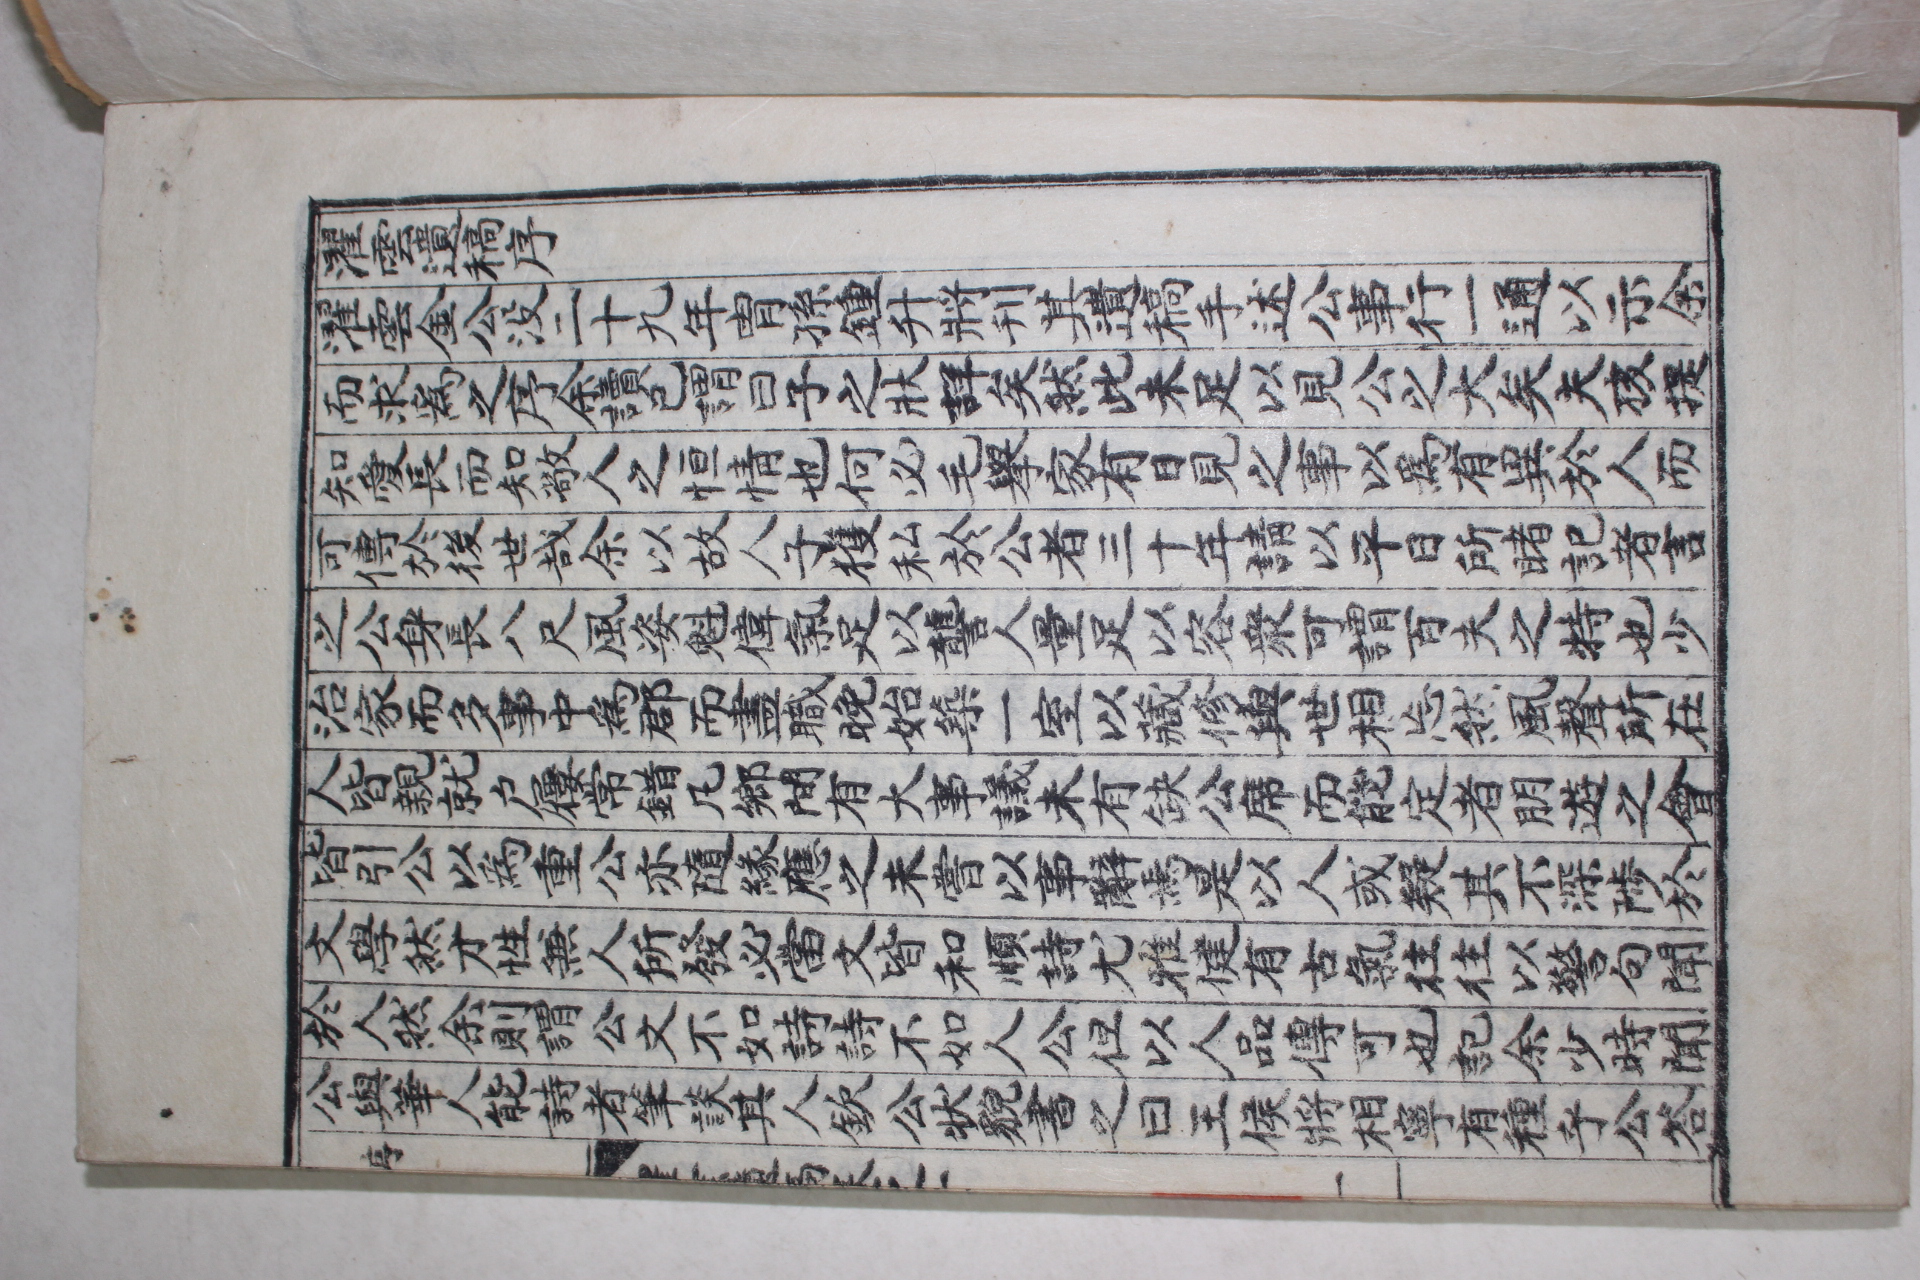 濯雲遺稿序
濯雲金公沒二十九年胄孫鍾升將刊其遺稿手述公事行一通以示余
而求爲之序余讀已謂曰子之狀詳矣然此未足以見公之大矣夫孩提
知愛長而知敬人之恒情也何必毛擧家有日見之事以爲有異於人而
可傳於後世哉余以故人子獲私於公者三十年請以平日所睹記者言
之公身長八尺風姿魁偉氣足以讋人量足以容衆可謂百夫之特也少
治家而多事中爲郡而盡職晩始築一室以藏修與世相忘然風聲所在
人皆親就戶屨常錯凡鄉間有大事議未有缺公席而能定者朋遊之會
皆引公以爲重公亦隨緣應之未嘗以事辭焉是以人或疑其不深嗜於
文學然才性無人所發必當文皆和順詩尤雅健有古氣往往以警句聞
於人然余則謂公文不如詩詩不如人公但以人品傳可也記余少時聞
公與華人能詩者筆談其人欽公狀貌書之曰王侯將相寧有種乎公答
序
一